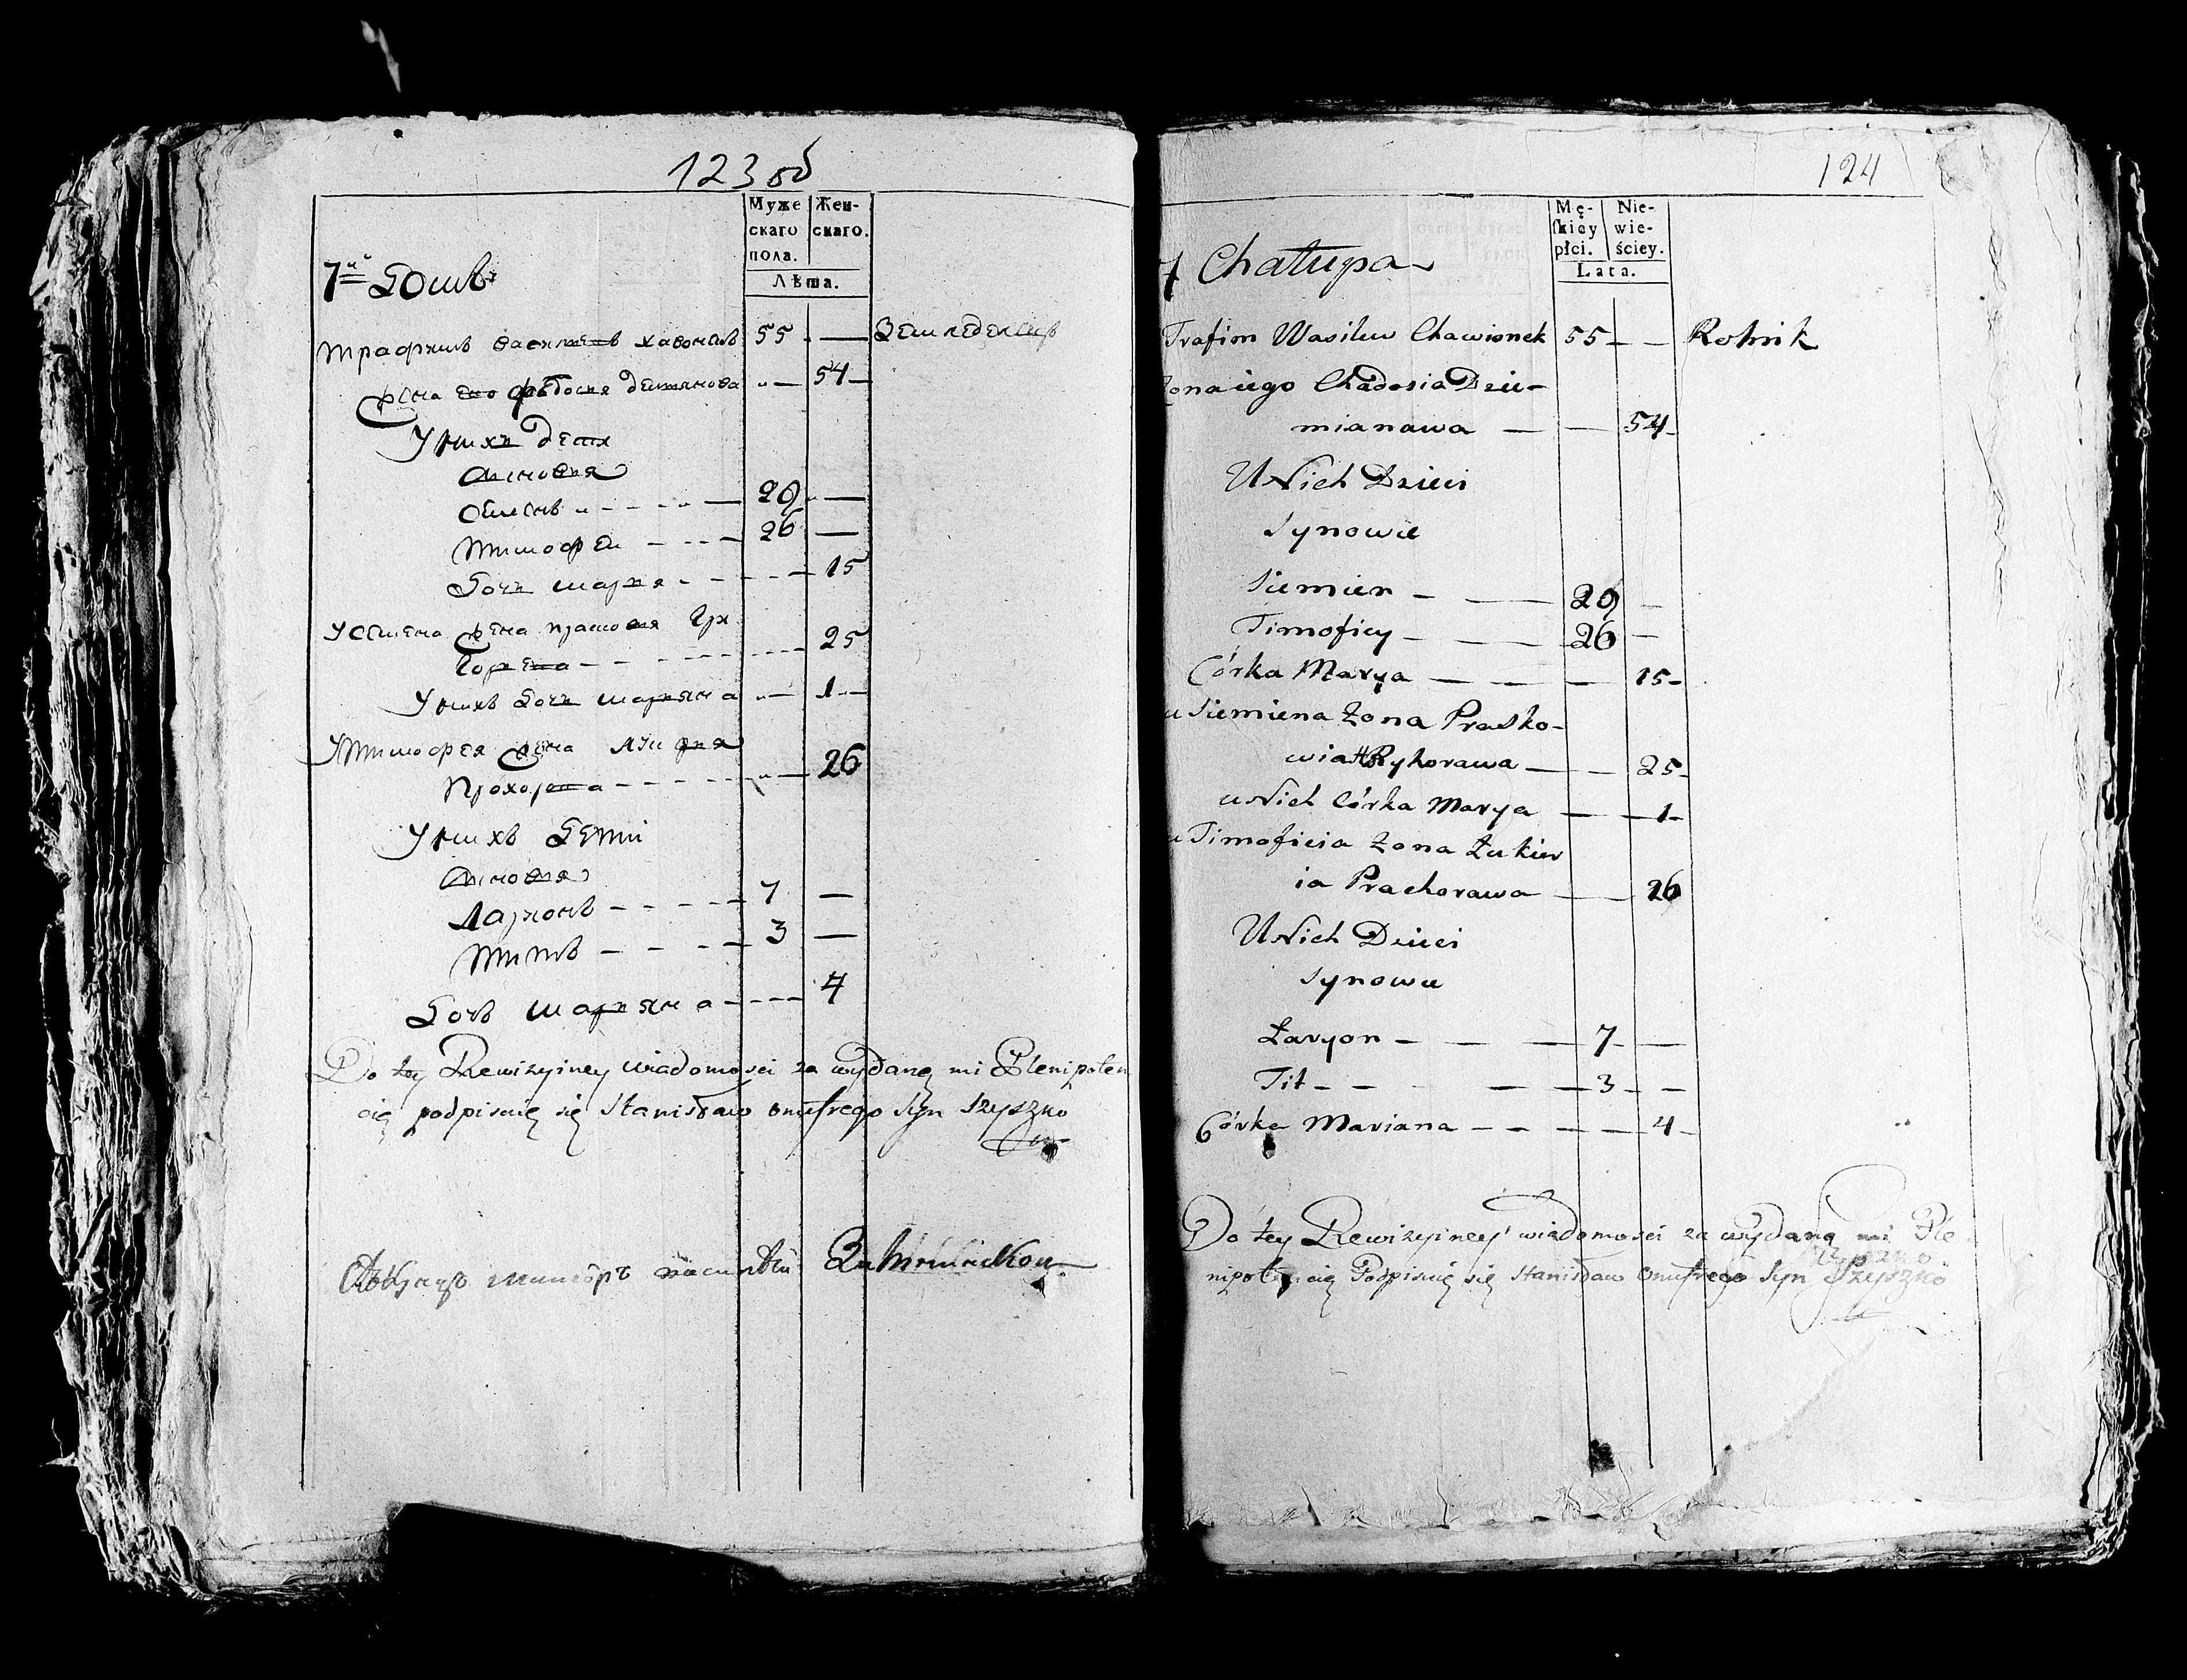 123 об
Муже
скаго
пола.
Жен-
скаго.
Лѣта.
7й Домъ
Трафимъ Васильевъ Хавонакъ 55 — Земледелецъ
жена его Федосия Демянова — 54
У нихъ дети
Сыновья
Семенъ 29 —
Тимофей 26 —
Дочь Маря 15
У Семена жена Прасковя Гри
горева 25
У нихъ дочь Маряна — 1
У Тимофея жена Лукеря
Прохорова — 26
У нихъ дети
Сыновья
Ларионъ 7 —
Титъ 3 —
Дочь Маряна 4
Do tey Rewizyiney wiadomosci za wydaną mi Plenipoten
cią podpisuię się Stanisław Onufrego Syn Szyszko
124
Mę-
skiey
płci.
Nie-
wie-
ściey.
Lata.
7 Chatupa
Trafim Wasilew Chawionek 55 — Rolnik
Żona iego Chadosia Dzie-
mianawa — — 54
U Nich Dzieci
Synowie
Siemien — 29 —
Timofiey — 26 —
Córka Marya — — 15
u Siemiena Żona Prasko-
wia Ryhorawa — — 25
u Nich Córka Marya — — 1
u Timofieia Żona Łukier
ia Prachorawa — — 26
U Nich Dzieci
Synowie
Łaryon — 7 —
Tit — 3 —
Córka Mariana — — 4
Do tey Rewizyiney wiadomosci za wydaną mi Ple
nipotencią Podpisuię się Stanisław Onufrego Syn Szyszko